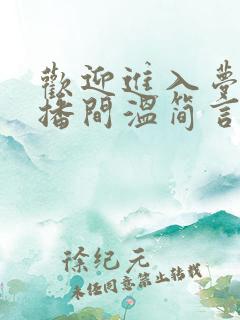 歡迎進入夢
播間溫簡言
徐纪元
未经同意禁止转载